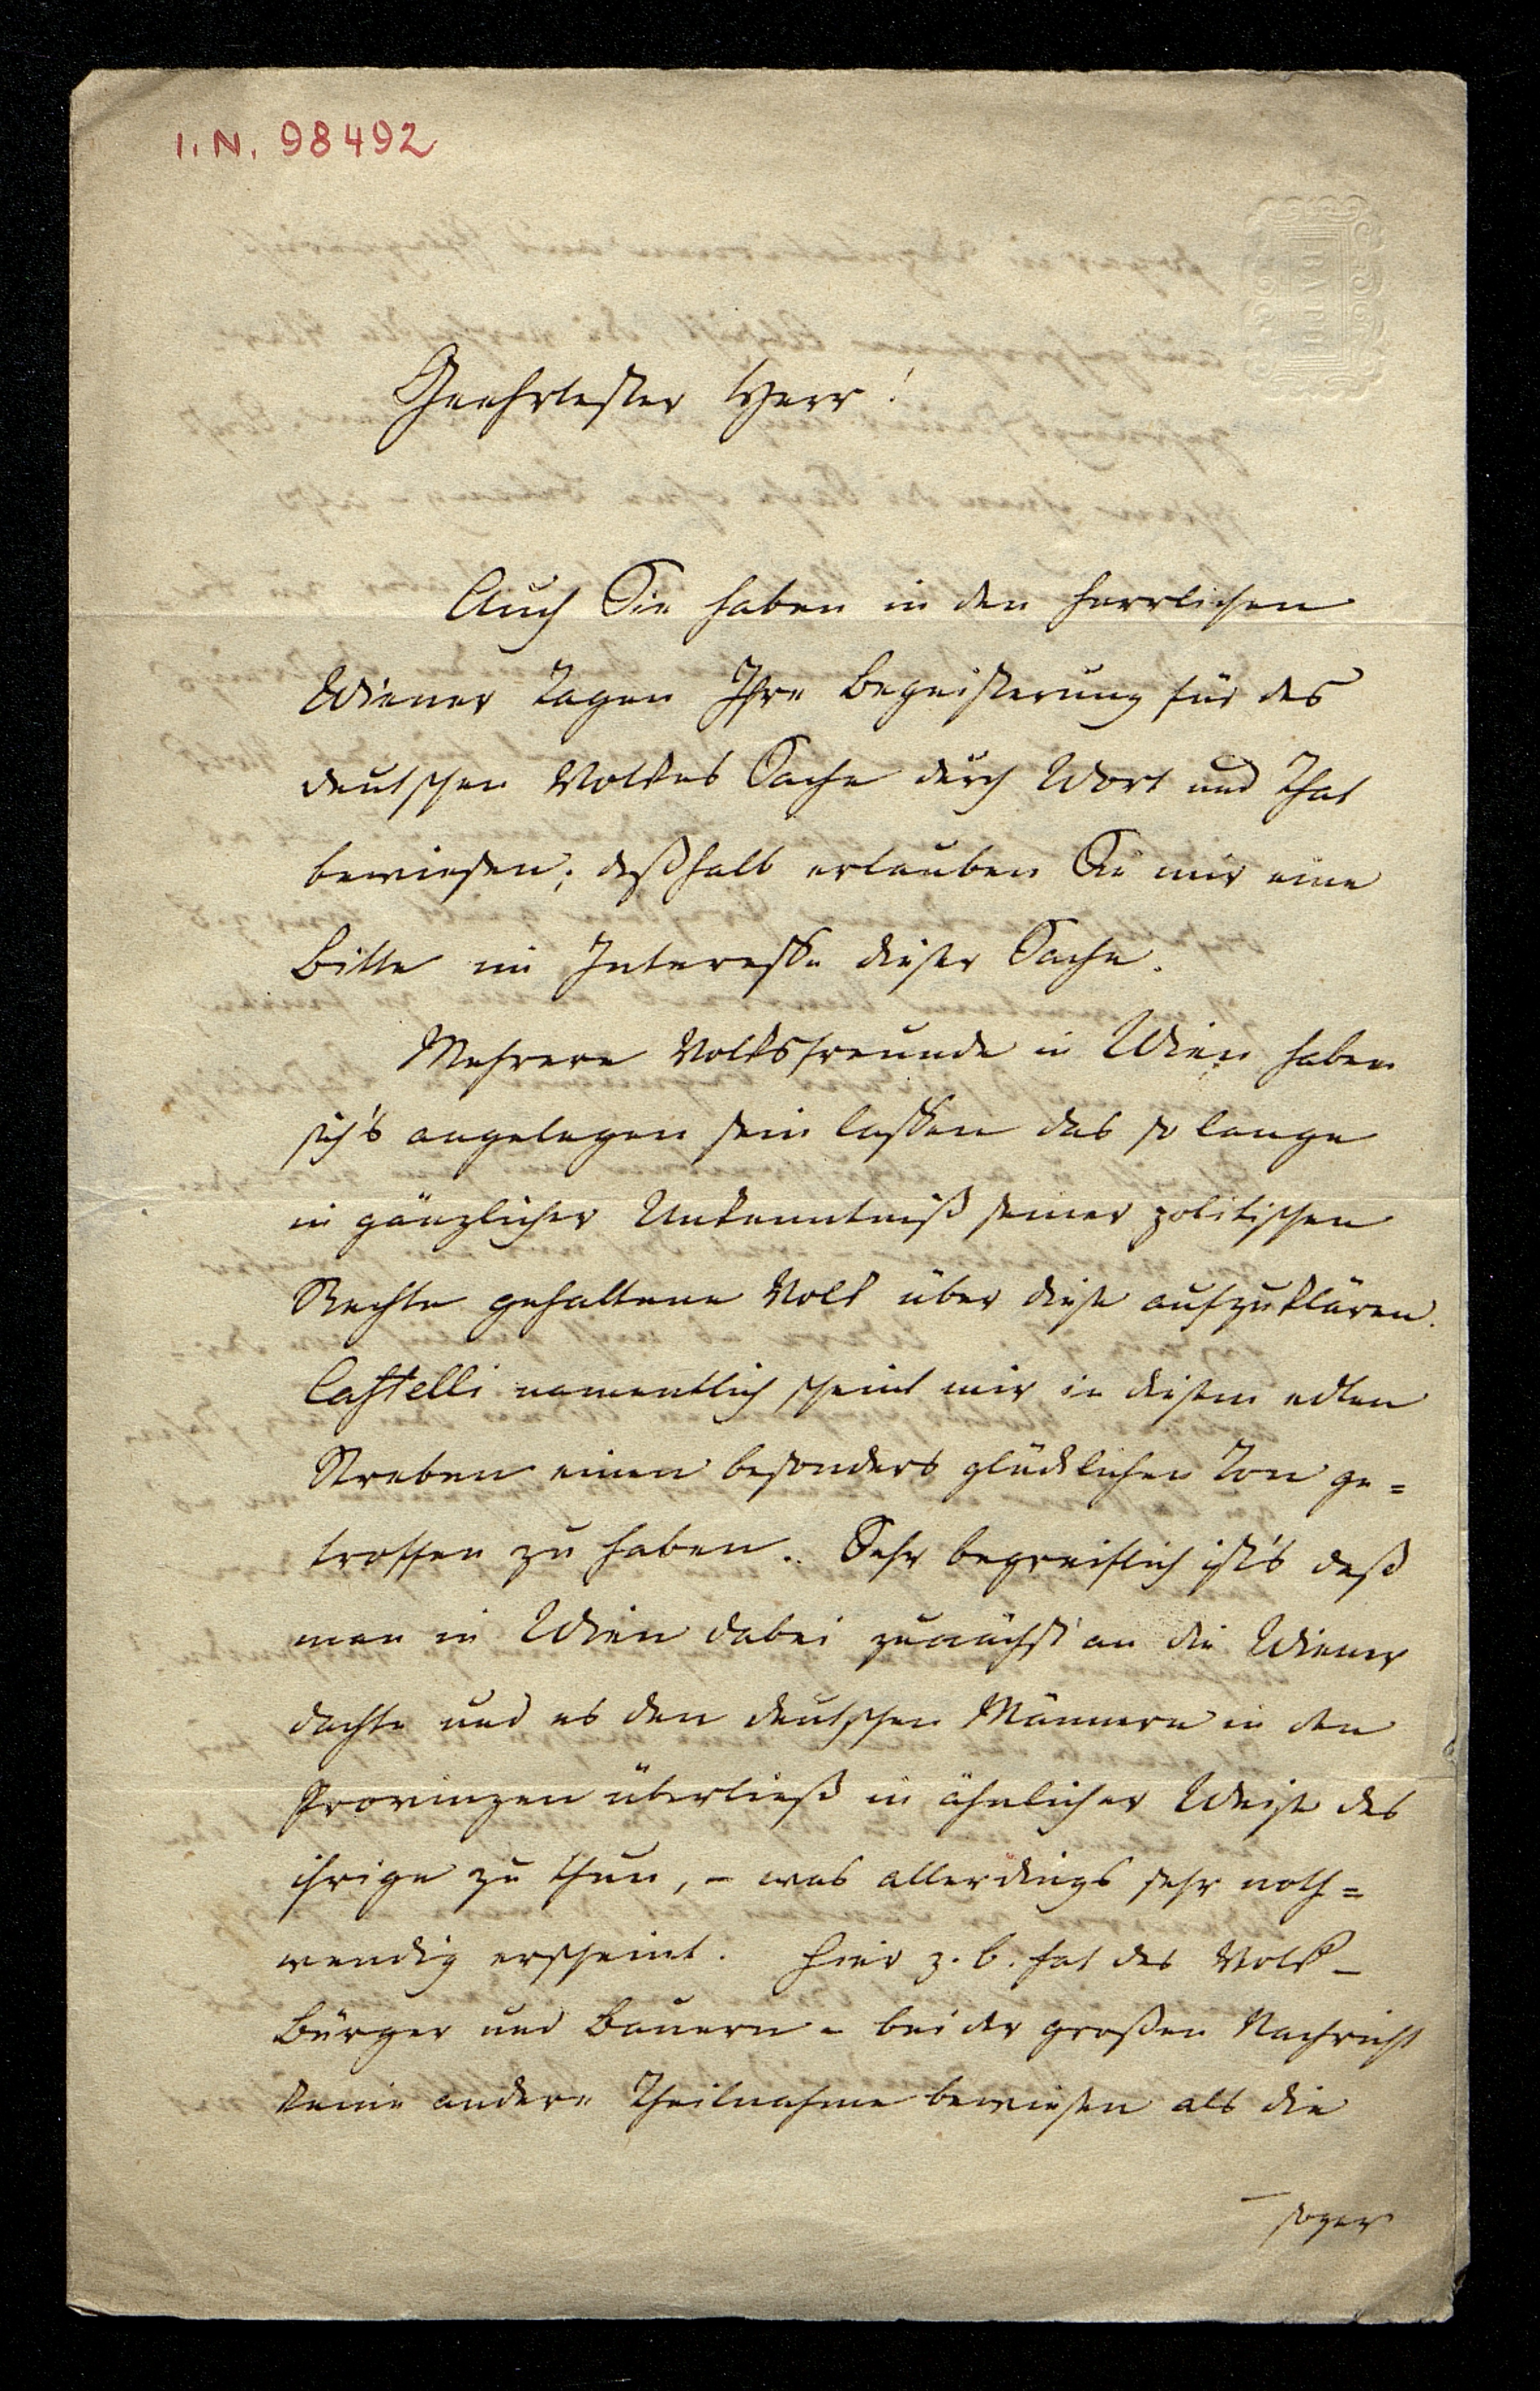 I. N. 98492
Geehrtester Herr!
Auch Sie haben in den herrlichen
Wiener Tagen Ihre Begeisterung für des
deutschen Volkes Sache durch Wort und That
bewiesen; deßhalb erlauben Sie mir eine
Bitte im Interesse dieser Sache.
Mehrere Volksfreunde in Wien haben
sich's angelegen sein lassen das so lange
in gänzlicher Unkenntniß seiner politischen
Rechte gehaltene Volk über diese aufzuklären.
Castelli namentlich scheint mir in diesem edlen
Streben einen besonders glücklichen Ton ge=
troffen zu haben. Sehr begreiflich ist's daß
man in Wien dabei zunächst an die Wiener
dachte und es den deutschen Männern in den
Provinzen überließ in ähnlicher Weise das
ihrige zu thun, – was allerdings sehr noth=
wendig erscheint. Hier z. B. hat das Volk –
Bürger und Bauern – bei der großen Nachricht
keine andere Theilnahme bewiesen als die
– sogar